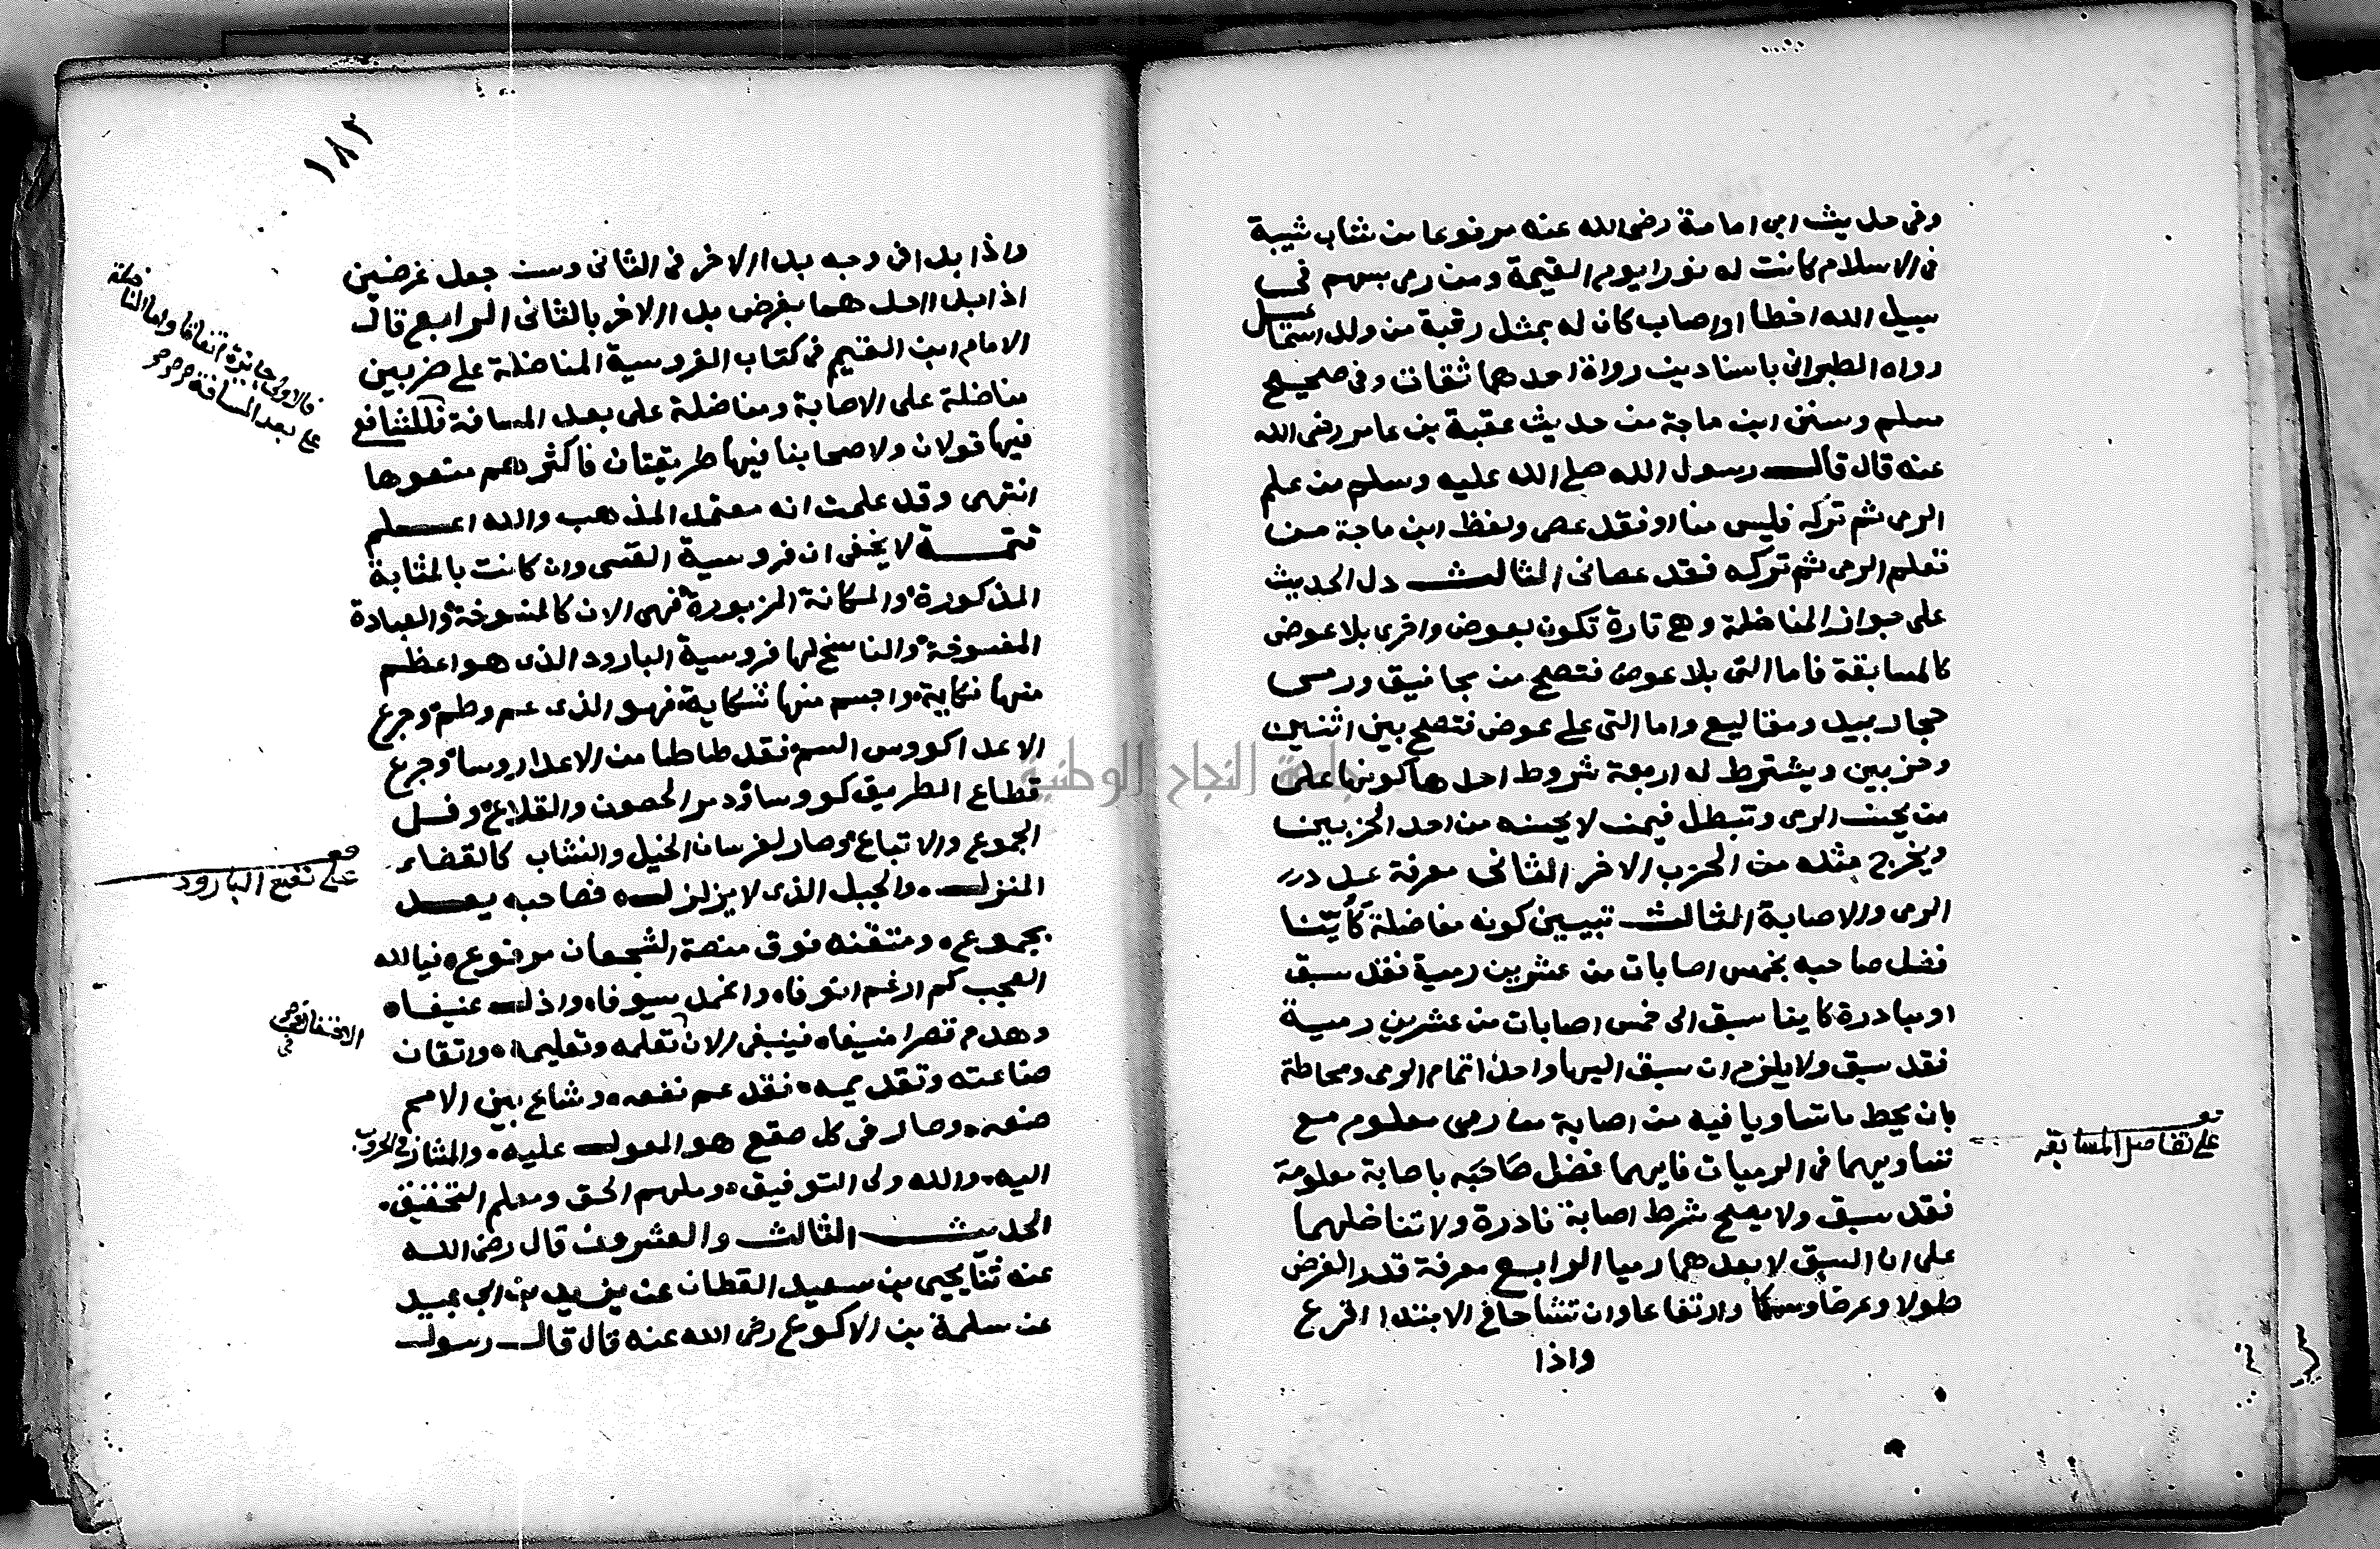 وفى حديث ابى امامة رضى الله عنه مرفوعا من شاب شيبة
فى الاسلام كانت له نورا يوم القيمة ومن رمى بسهم فى
سبيل الله اخطأ او اصاب كان له بمثل رقبة من ولد اسماعيل
رواه الطبرانى باسنادين رواة احدهما ثقات وفى صحيح
مسلم وسنن ابن ماجة من حديث عقبة بن عامر رضى الله
عنه قال قال رسول الله صلى الله عليه وسلم من علم
الرمى ثم تركه فليس منا او فقد عصى ولفظ ابن ماجة من
تعلم الرمى ثم تركه فقد عصانى الثالث دل الحديث
على جواز المناضلة وهى تارة تكون بعوض واخرى بلا عوض
كالمسابقة فاما التى بلا عوض فتصح من مجانيق ورمى
حجار بيد ومقاليع واما التى على عوض فتصح بين اثنين
وحزبين ويشترط له اربعة شروط احدها كونها على
من يحسن الرمى وتبطل فيمن لا يحسنه من احد الحزبين
ويخرج مثله من الحزب الاخر الثانى معرفة عدد
الرمى والاصابة الثالث تبيين كونه مفاضلة كأيّنا
فضل صاحبه بخمس اصابات من عشرين رمية فقد سبق
او مبادرة كاينا سبق الى خمس اصابات من عشرين رمية
فقد سبق ولا يلزم ان سبق اليها واحد اتمام الرمى ومحاطة
بان يحط ما تساويا فيه من اصابة من رمى معلوم مع
تساويهما فى الرميات فايهما فضل صاحبه باصابة معلومة
فقد سبق ولا يصح شرط اصابة نادرة ولا تناضلهما
على ان السبق لابعدهما رميا الرابع معرفة قدر الغرض
طولا وعرضا وسمكا وارتفاعا وان تشاحا فى الابتدا اقرع
واذا
تعـ
على تفاصل المسابقه
١٨٢
واذا بدا فى وجه بدا الاخر فى الثانى وسن جعل غرضين
اذا بدا احدهما بغرض بدا الاخر بالثانى الرابع قال
الامام ابن القيم فى كتاب الفروسية المناضلة على ضربين
مناضلة على الاصابة ومناضلة على بعد المسافة فللشافعى
فيها قولان ولاصحابنا فيها طريقتان فاكثرهم منعوها
انتهى وقد علمت انه معتمد المذهب والله اعلم
تتمـــة لا يخفى ان فروسية القسى وان كانت بالمثابة
المذكورة والمكانة المزبورة فهى الان كالمنسوخة والعبادة
المفسوخة والناسخ لها فروسية البارود الذى هو اعظم
منها نكاية واجسم منها شكاية فهو الذى عم وطم وجرع
الاعدا كووس السم فقد طاطا من الاعدا روسا وجرع
قطاع الطريق كووسا ودمر الحصون والقلاع وفل
الجموع والاتباع وصار لفرسان الخيل والنشاب كالقضاء
المنزل والجبل الذى لا يزلزل فصاحبه يعد
بجموع ومتقنه فوق منصة الشجعان مرفوع فيا لله
العجب كم ارغم انوفا واغمد سيوفا واذل عنيفا
وهدم قصرا منيفا فينبغى الان تعلمه وتعليمه واتقان
صناعته وتقديمه فقد عم نفعه وشاع بين الامم
صنعه وصار فى كل صقع هو المعول عليه والمشار فى الحروب
اليه والله ولى التوفيق وملهم الحق ومعلم التحقيق
الحديث الثالث والعشرون قال رضى الله
عنه ثنا يحيى بن سعيد القطان عن يزيد بن ابى عبيد
عن سلمة بن الاكوع رضى الله عنه قال قال رسول
فالاولى جايزة اتفاقا واما المناضلة
على بعد المسافة
على نفع البارود